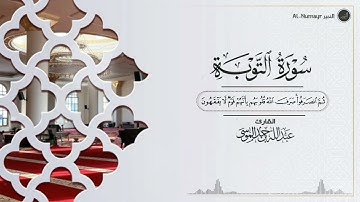 النمير AL-Numayr
سُورَةُ التَّوْبَةِ
ثُمَّ انصَرَفُوا صَرَفَ اللَّهُ قُلُوبَهُم بِأَنَّهُمْ قَوْمٌ لَا يَفْقَهُونَ
القارئ
عبدالله